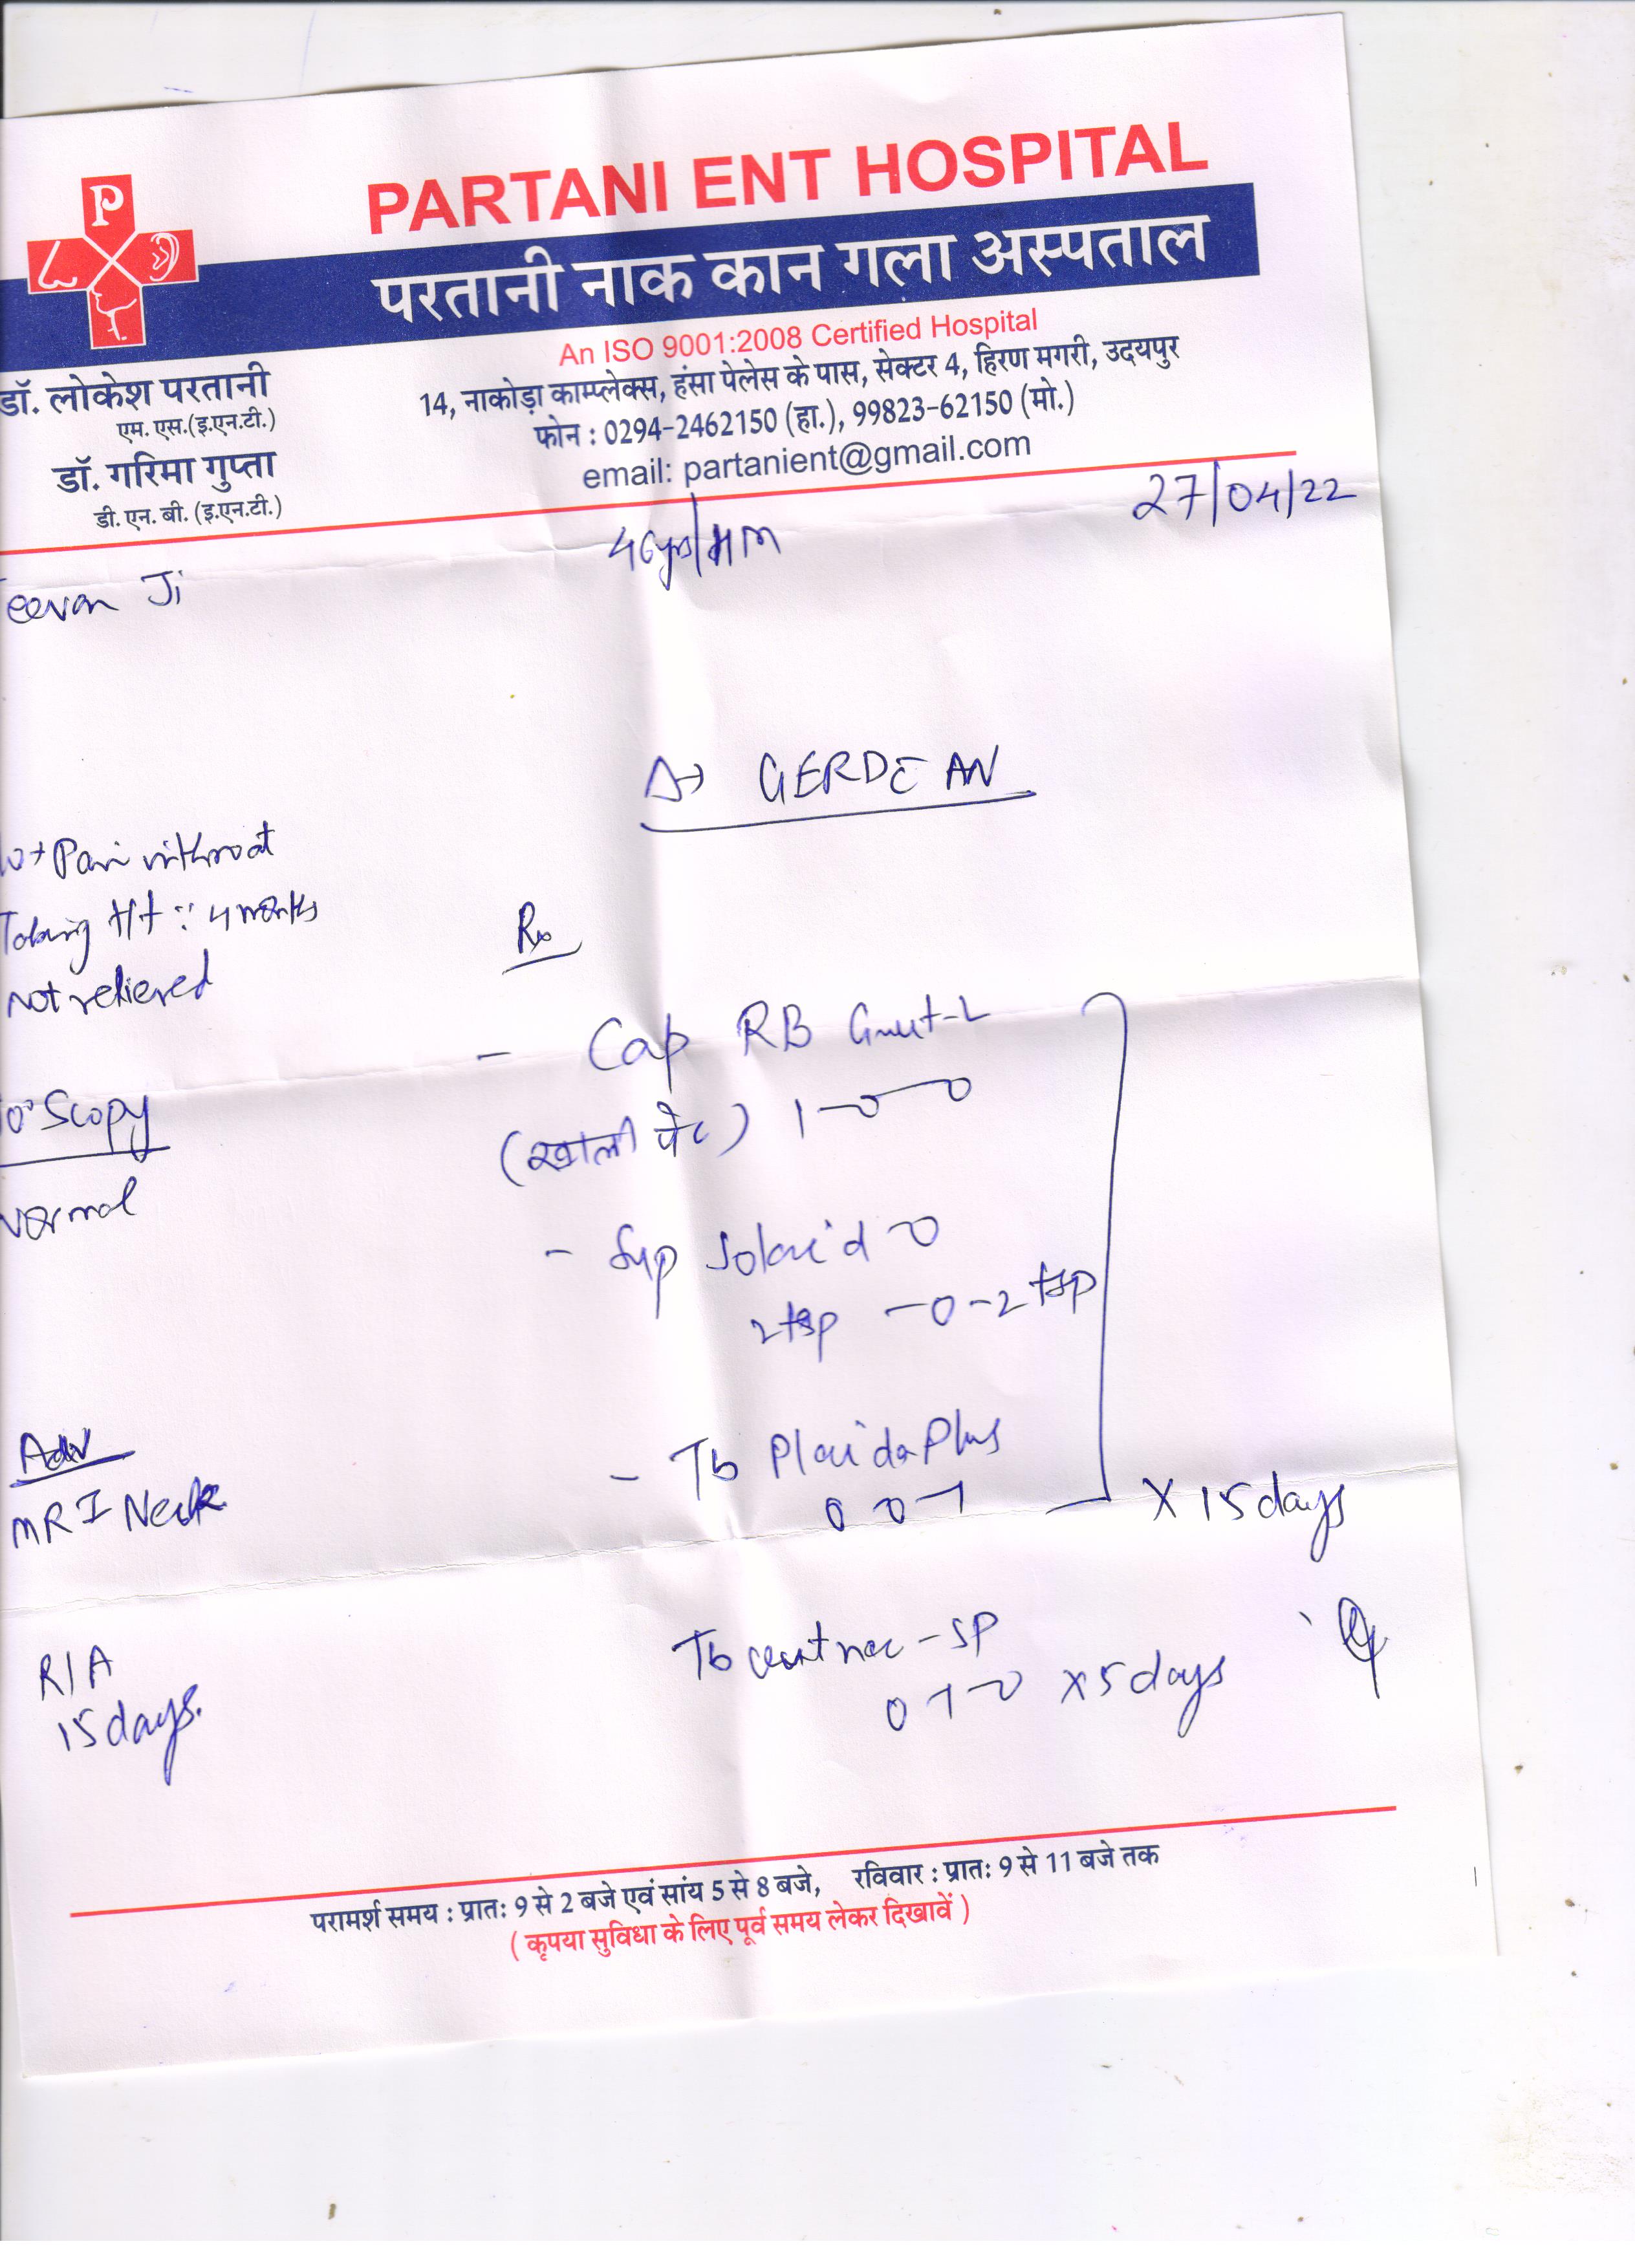 P
PARTANI ENT HOSPITAL
परतानी नाक कान गला अस्पताल
An ISO 9001:2008 Certified Hospital
14, नाकोड़ा काम्प्लेक्स, हंसा पेलेस के पास, सेक्टर 4, हिरण मगरी, उदयपुर
फोन : 0294-2462150 (हा.), 99823-62150 (मो.)
email: partanient@gmail.com
डॉ. लोकेश परतानी
एम. एस.(इ.एन.टी.)
डॉ. गरिमा गुप्ता
डी. एन. बी. (इ.एन.टी.)
27/04/22
eevan Ji
Pain
4 months
not relieved
Scopy
normal
Adv
MRI Neck
R/A
15 days.
Rx
- Cap RB
(खाली पेट) 1-0-0
- Syp
2tsp -0-2 tsp
- Tb Plus
0 0-1
X 15 days
Tb -SP
0 1-0 X 5 days
परामर्श समय : प्रातः 9 से 2 बजे एवं सांय 5 से 8 बजे, रविवार : प्रातः 9 से 11 बजे तक
( कृपया सुविधा के लिए पूर्व समय लेकर दिखावें )